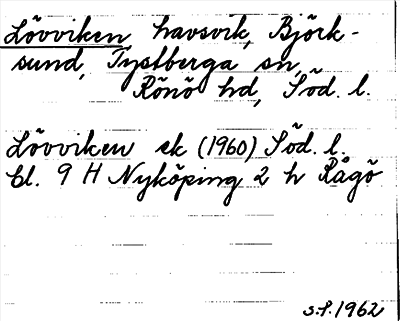 Lövviken havsvik, Björk-
sund, Tystberga sn,
Rönö hd, Söd. l.
Lövviken ek (1960) Söd. l.
Bl. 9 H Nyköping 2 h Rågö
s.f. 1962